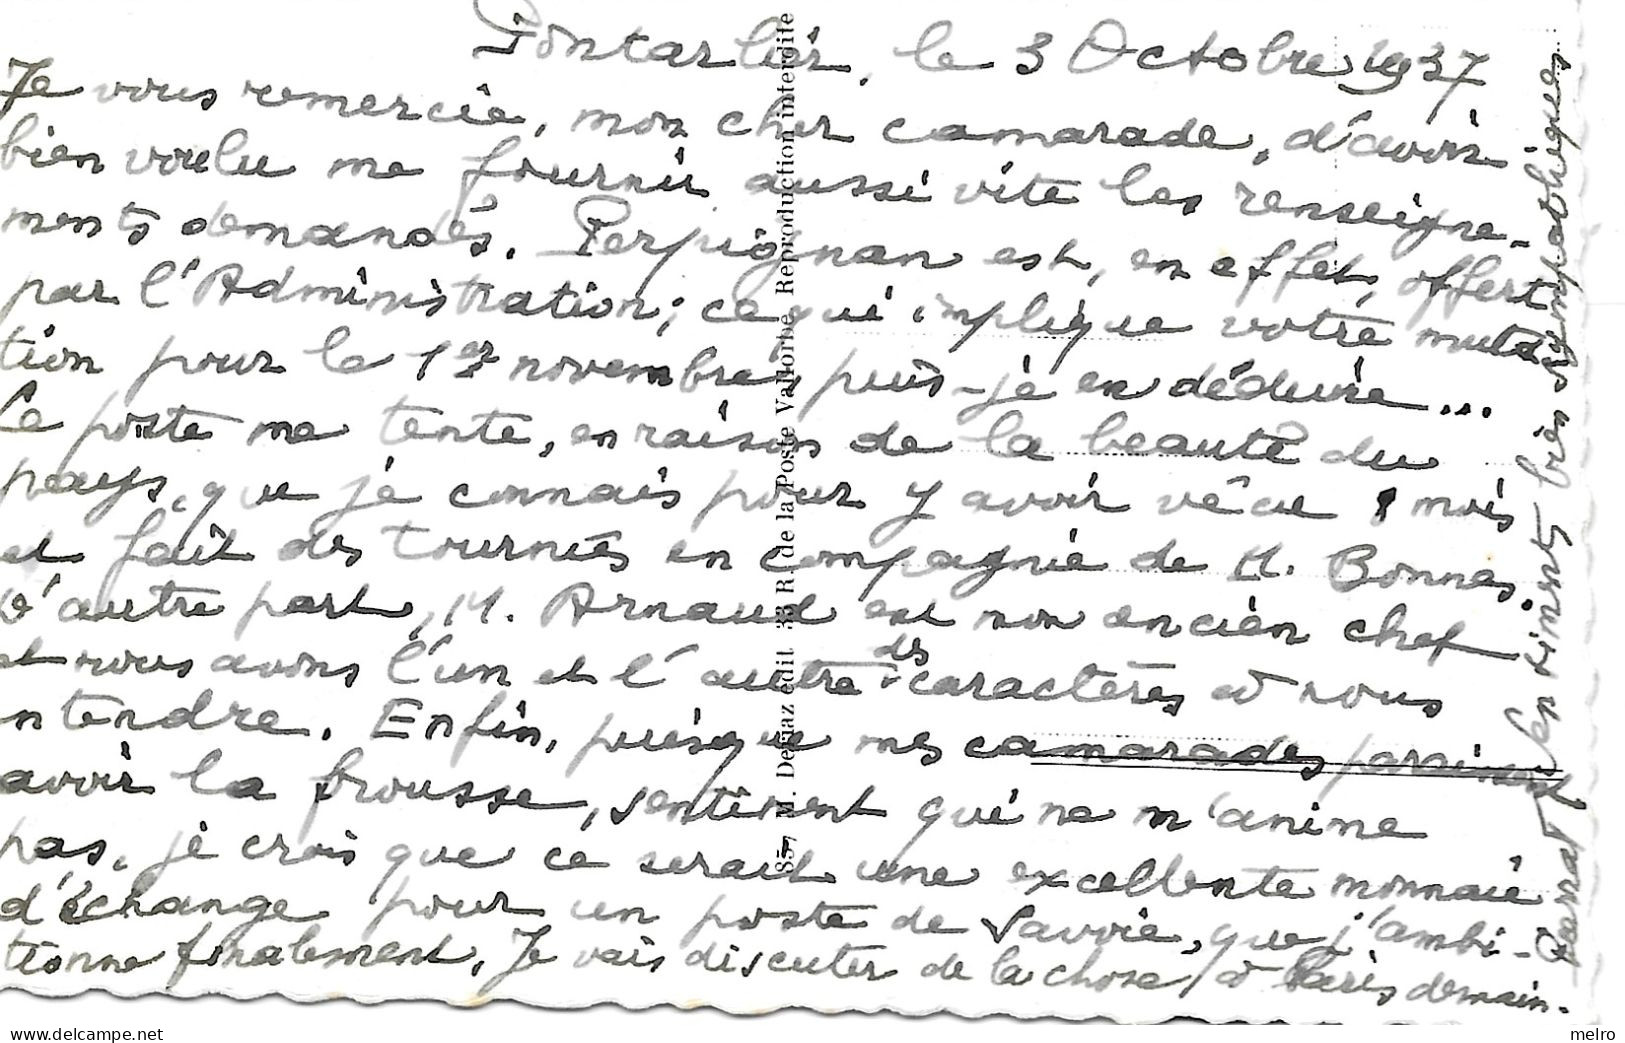 Pontarlier, le 3 Octobre 1937
Je vous remercie, mon cher camarade, d'avoir
bien voulu me fournir aussi vite les renseigne-
ments demandés. Perpignan est, en effet, offert
par l'Administration; ce qui implique votre muta-
tion pour le 1er novembre, puis-je en déduire...
Ce poste me tente, en raison de la beauté du
pays, que je connais pour y avoir vécu 1 mois
et fait des tournées en compagnie de M. Bonnes.
D'autre part, M. Arnaud est mon ancien chef
et nous avons l'un et l'autre des caractères à nous
entendre. Enfin, puisque mes camarades paraissent
avoir la frousse, sentiment qui ne m'anime
pas, je crois que ce serait une excellente monnaie
d'échange pour un poste de Savoie, que j'ambi-
tionne finalement. Je vais discuter de la chose à Paris demain.
Sentiments bien sympathiques
857 M. Deriaz édit 33 R. de la Poste Vallorbe Reproduction interdite
melro